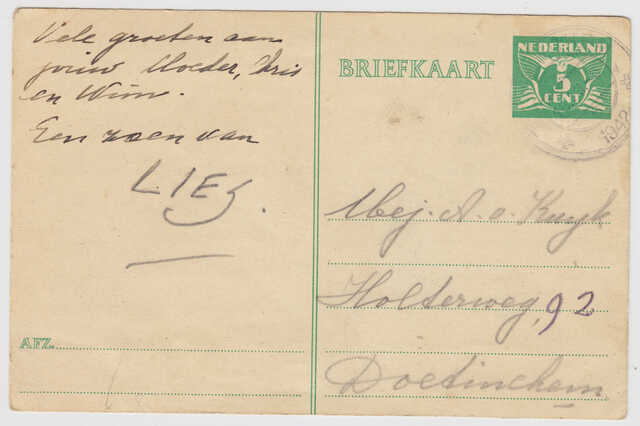 Vele groeten aan
jouw Moeder, Kris
en Wim.
Een zoen van
LIES.
AFZ.
BRIEFKAART
NEDERLAND
5
CENT
1942
Mej. A. v. Kuyk
Holterweg, 92
Doetinchem